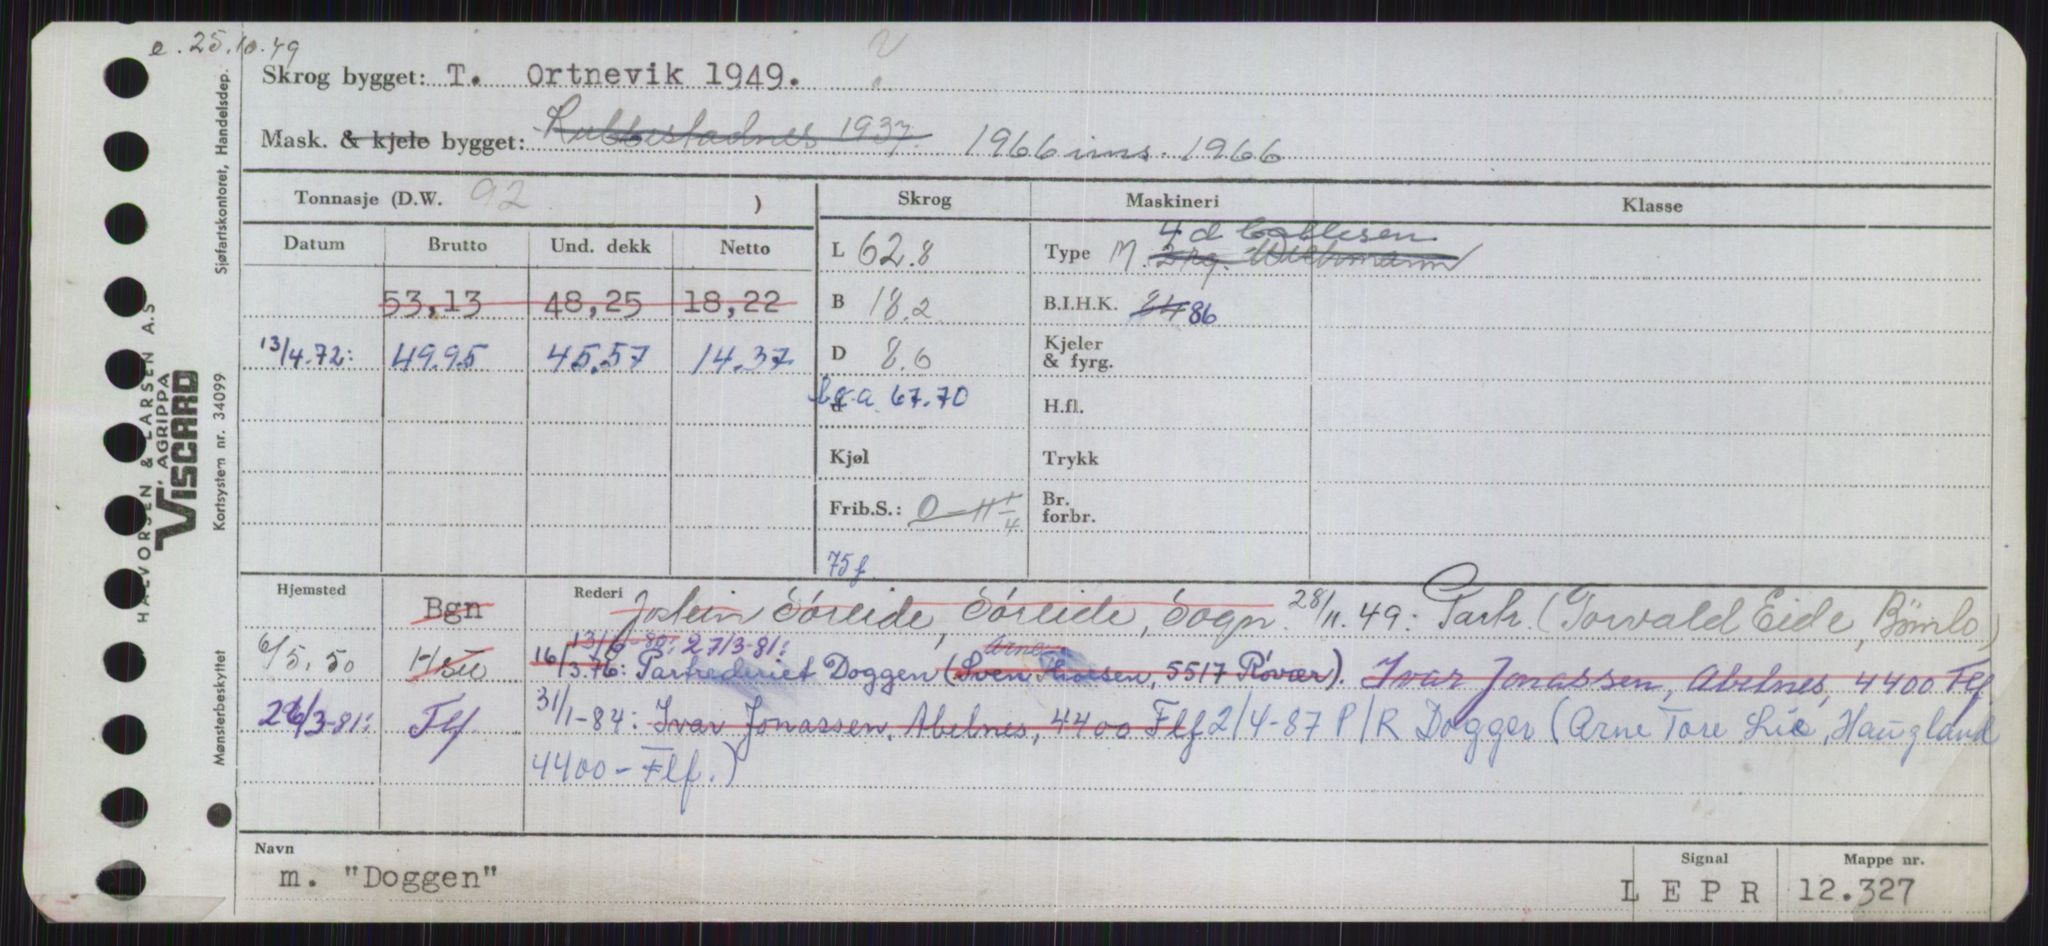 e. 25.10.49
Skrog bygget: T. Ortnevik 1949.
Mask. & kjele bygget: Rubbestadnes 1937. 1966 ins. 1966
Tonnasje (D.W. 92 )
Skrog Maskineri Klasse
Datum Brutto Und. dekk Netto
L 62.8 Type M. 2 rg. Wichmann
4 d
53,13 48,25 18,22
B 18.2 B.I.H.K. 84 86
13/4.72: 49.95 45.57 14.37
D 8.6 Kjeler & fyrg.
d 67.70 H.fl.
Kjøl Trykk
Frib.S.: 0-11 1/4 Br. forbr.
75f
Hjemsted Rederi
Bgn Jostein Søreide, Søreide, Sogn. 28/11.49: Partr. (Torvald Eide, Bömlo)
13/6-80: 27/3-81: Arne
6/5.50 16/3.76: Partrederiet Doggen (Sven Thorsen, 5517 Røvær). Ivar Jonassen, Abelnes, 4400 Flf
26/3-81: Flf 31/1-84: Ivar Jonassen, Abelnes, 4400 Flf 2/4-87 P/R Dogger (Arne Tore Lie, Haugland
4400 - Flf.)
Navn
m. "Doggen"
Signal
L E P R
Mappe nr.
12.327
Sjøfartskontoret, Handelsdep.
Kortsystem nr. 34099
Mønsterbeskyttet
HALVORSEN & LARSEN A.S
V. AGRIPPA
VISCARD